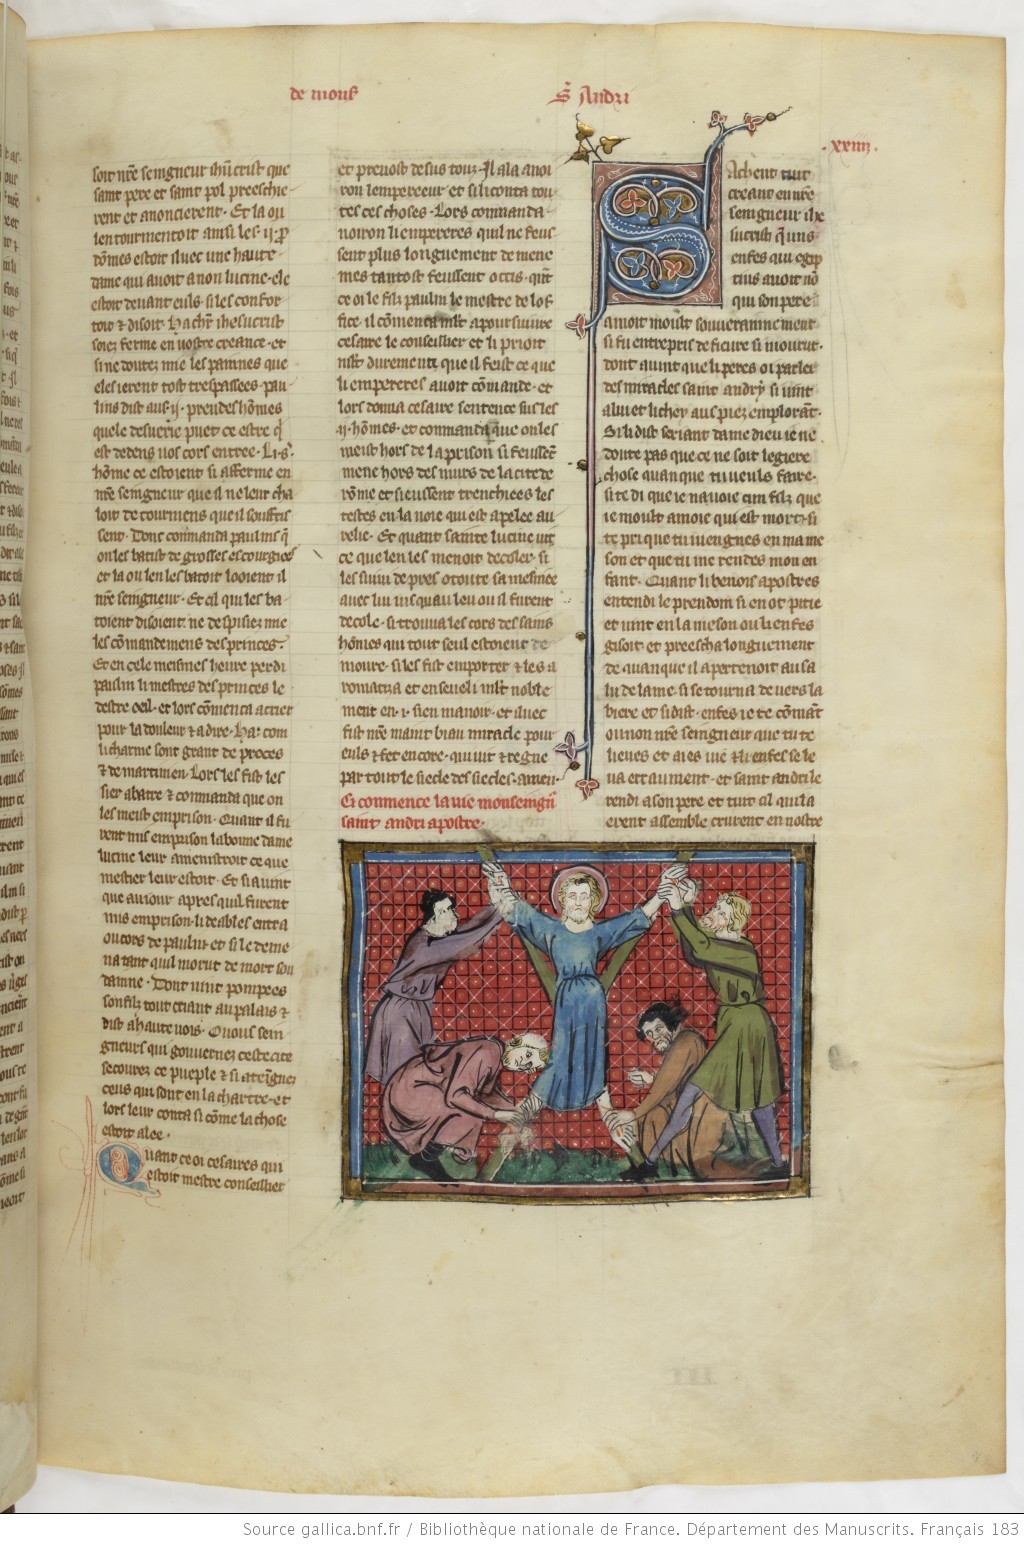 de mons
S. Andri
.xxiiij.
soit nr̃e seingneur ihũcrist que
saint pere et saint pol preeschie
rent et anoncierent. Et la ou
len tourmentoit ainsi les .ij. p̃
dõmes estoit il uec une haute
dame qui auoit a non lucine. ele
estoit deuant euls si les confor
toit ⁊ disoit.
soiez ferme en uostre creance. et
si ne doutez mie les painnes que
eles ierent tost trespassees. pau
lins dist aus .ij. preudes hõmes
quele desuerie puet ce estre q̃
est dedens uos cors entree. Li .s.
hõme ce estoient si afferme en
nr̃e seingneur que il ne leur cha
loit de tourmens que il souffris
sent. Donc conmanda paulins q̃
on les batist de grosses escourgiees
et la ou len les batoit looient il
nr̃e seingneur. Et cil qui les ba
toient disoient. ne despisiez mie
les cõmandemens des princes.
Et en cele meismes heure perdi
paulin li mestres des princes le
destre oeil. et lors cõmenca a crier
pour la douleur ⁊ a dire. Ha. com
li charme sont grant de proces
⁊ de martinien. Lors les fist les
sier abatre ⁊ conmanda que on
les meist emprison. Quant il fu
rent mis emprison la bonne dame
lucine leur amenistroit ce que
mestier leur estoit. Et si auint
que au iour apres quil furent
mis emprison. li deables entra
ou cors de paulin et si le deme
na tant quil morut de mort sou
dainne. Dont uint pompees
son filz tout criant au palais ⁊
dist a haute uois. O uous sein
gneurs qui gouuernez ceste cite
secourez ce pueple ⁊ si ateingnez
ceus qui sont en la chartre. et
lors leur conta si cõme la chose
estoit alee.
Quant ce oi cesaires qui
estoit mestre conseillier
et preuost desus touz. Il ala a noi
ron lempereeur et si li conta tou
tes ces choses. Lors conmanda
noiron li empereres quil ne feus
sent plus longuement de mene
mes tantost feussent occis. qñt
ce oi le filz paulin le mestre de lof
fice. il cõmenca mlt a poursuiure
cesaire le conseillier et li prioit
mlt durement que il feist ce que
li empereres auoit cõmande. et
lors donna cesaire sentence sus les
.ij. hõmes. et conmanda que on les
meist hors de la prison si feussent
mene hors des murs de la cite de
rõme et si eussent trenchiees les
testes en la uoie qui est apelee au
relie. Et quant sainte lucine uit
ce que len les menoit decoler. si
les suiui de pres o toute sa mesniee
auec lui iusquau leu ou il furent
decole. si trouua les cors des sains
hõmes qui tout seul estoient de
moure. si les fist emporter ⁊ les a
romatiza et enseueli mlt noble
ment en .i. sien manoir. et auec
fist nr̃e maint biau miracle pour
euls ⁊ fet encore. qui uit ⁊ regne
par tout le siecle des siecles. amen.
Ci commence la uie monseingñ
saint andri apostre.
Sachent tuit
creant en nr̃e
seingneur ihe
sucrist q̃ uns
enfes qui egip
tius auoit nõ
qui son pere
amoit moult souuerainnement
si fu entrepris de fieure si mourut.
dont auint que li peres oi parler
des miracles saint andry si uint
a lui et li chey aus piez em plorãt.
Si li dist seriant dame dieu ie ne
doute pas que ce ne soit legiere
chose quanque tu ueuls faire.
si te di que ie nauoie cun filz que
ie moult amoie qui est mort. si
te pri que tu uiengnes en ma me
son et que tu me rendes mon en
fant. Quant li benois apostres
entendi le preudom si en ot pitie
et uint en la meson ou li enfes
gisoit et preescha longuement
de quanque il apertenoit au sa
lu de lame. si se tourna deuers la
biere et si dist. enfes ie te cõmãt
ou non nr̃e seingneur que tu te
lieues et aies uie ⁊ li enfes se le
ua errãment. et saint andri le
rendi a son pere et tuit cil qui la
erent assemble crurent en nostre
Source gallica.bnf.fr / Bibliothèque nationale de France. Département des Manuscrits. Français 183